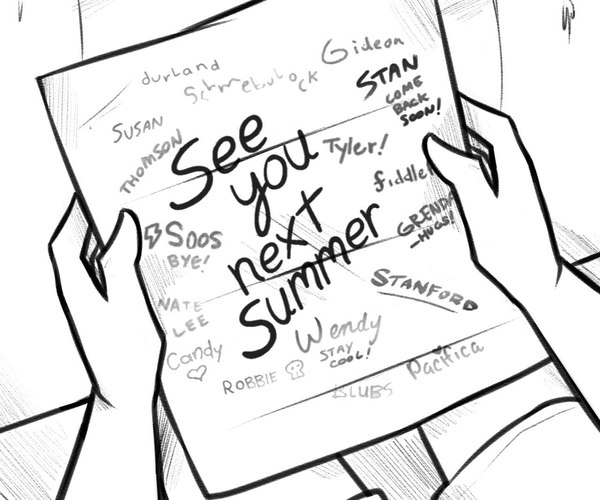 durland
Schmebulock
Gideon
STAN
COME
BACK
SOON!
SUSAN
THOMSON
See
you
next
Summer
Tyler!
fiddle
GRENDA
-HUGS!
Soos
BYE!
STANFORD
NATE
LEE
Candy
Wendy
STAY
COOL!
ROBBIE
BLUBS
Pacifica